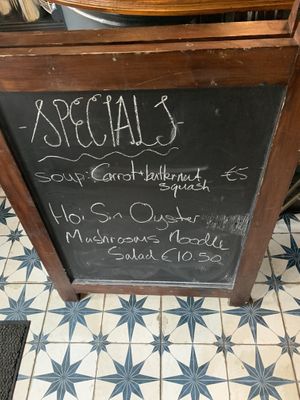 -SPECIALS-
Soup: Carrot + butternut - €5
squash
Hoi Sin Oyster
Mushrooms Noodle
Salad €10.50